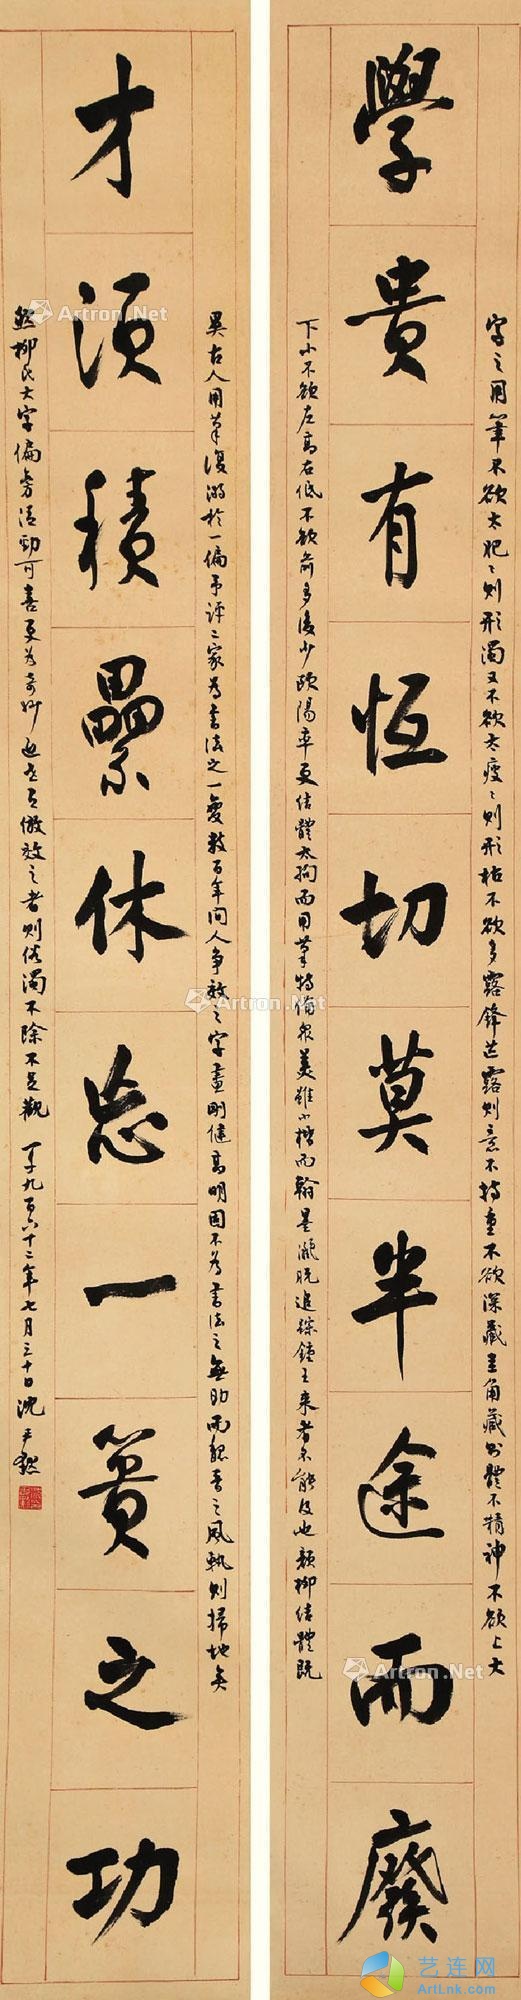 學貴有恆切莫半途而廢
字之用筆不欲太肥〻則形濁又不欲太瘦〻則形枯不欲多露鋒芒露則意不持重不欲深藏圭角藏則體不精神不欲上大
下小不欲左高右低不欲前多後少歐陽率更結體太拘而用筆特備眾美雖小楷而翰墨灑脫追蹤鍾王來者不能及也顏柳結體既
才須積纍休忘一簣之功
異古人用筆復溺於一偏予評二家為書法之一變數百年間人爭效之字畫剛健高明固不為書法之無助而魏晉之風軌則掃地矣
然柳氏大字偏旁清勁可喜更為奇妙近世有倣效之者則俗濁不除不足觀 一千九百六十二年七月三十日 沈尹默
Artron.Net
Artron.Net
Artron.Net
Artron.Net
Artron.Net
艺连网
ArtLnk.com